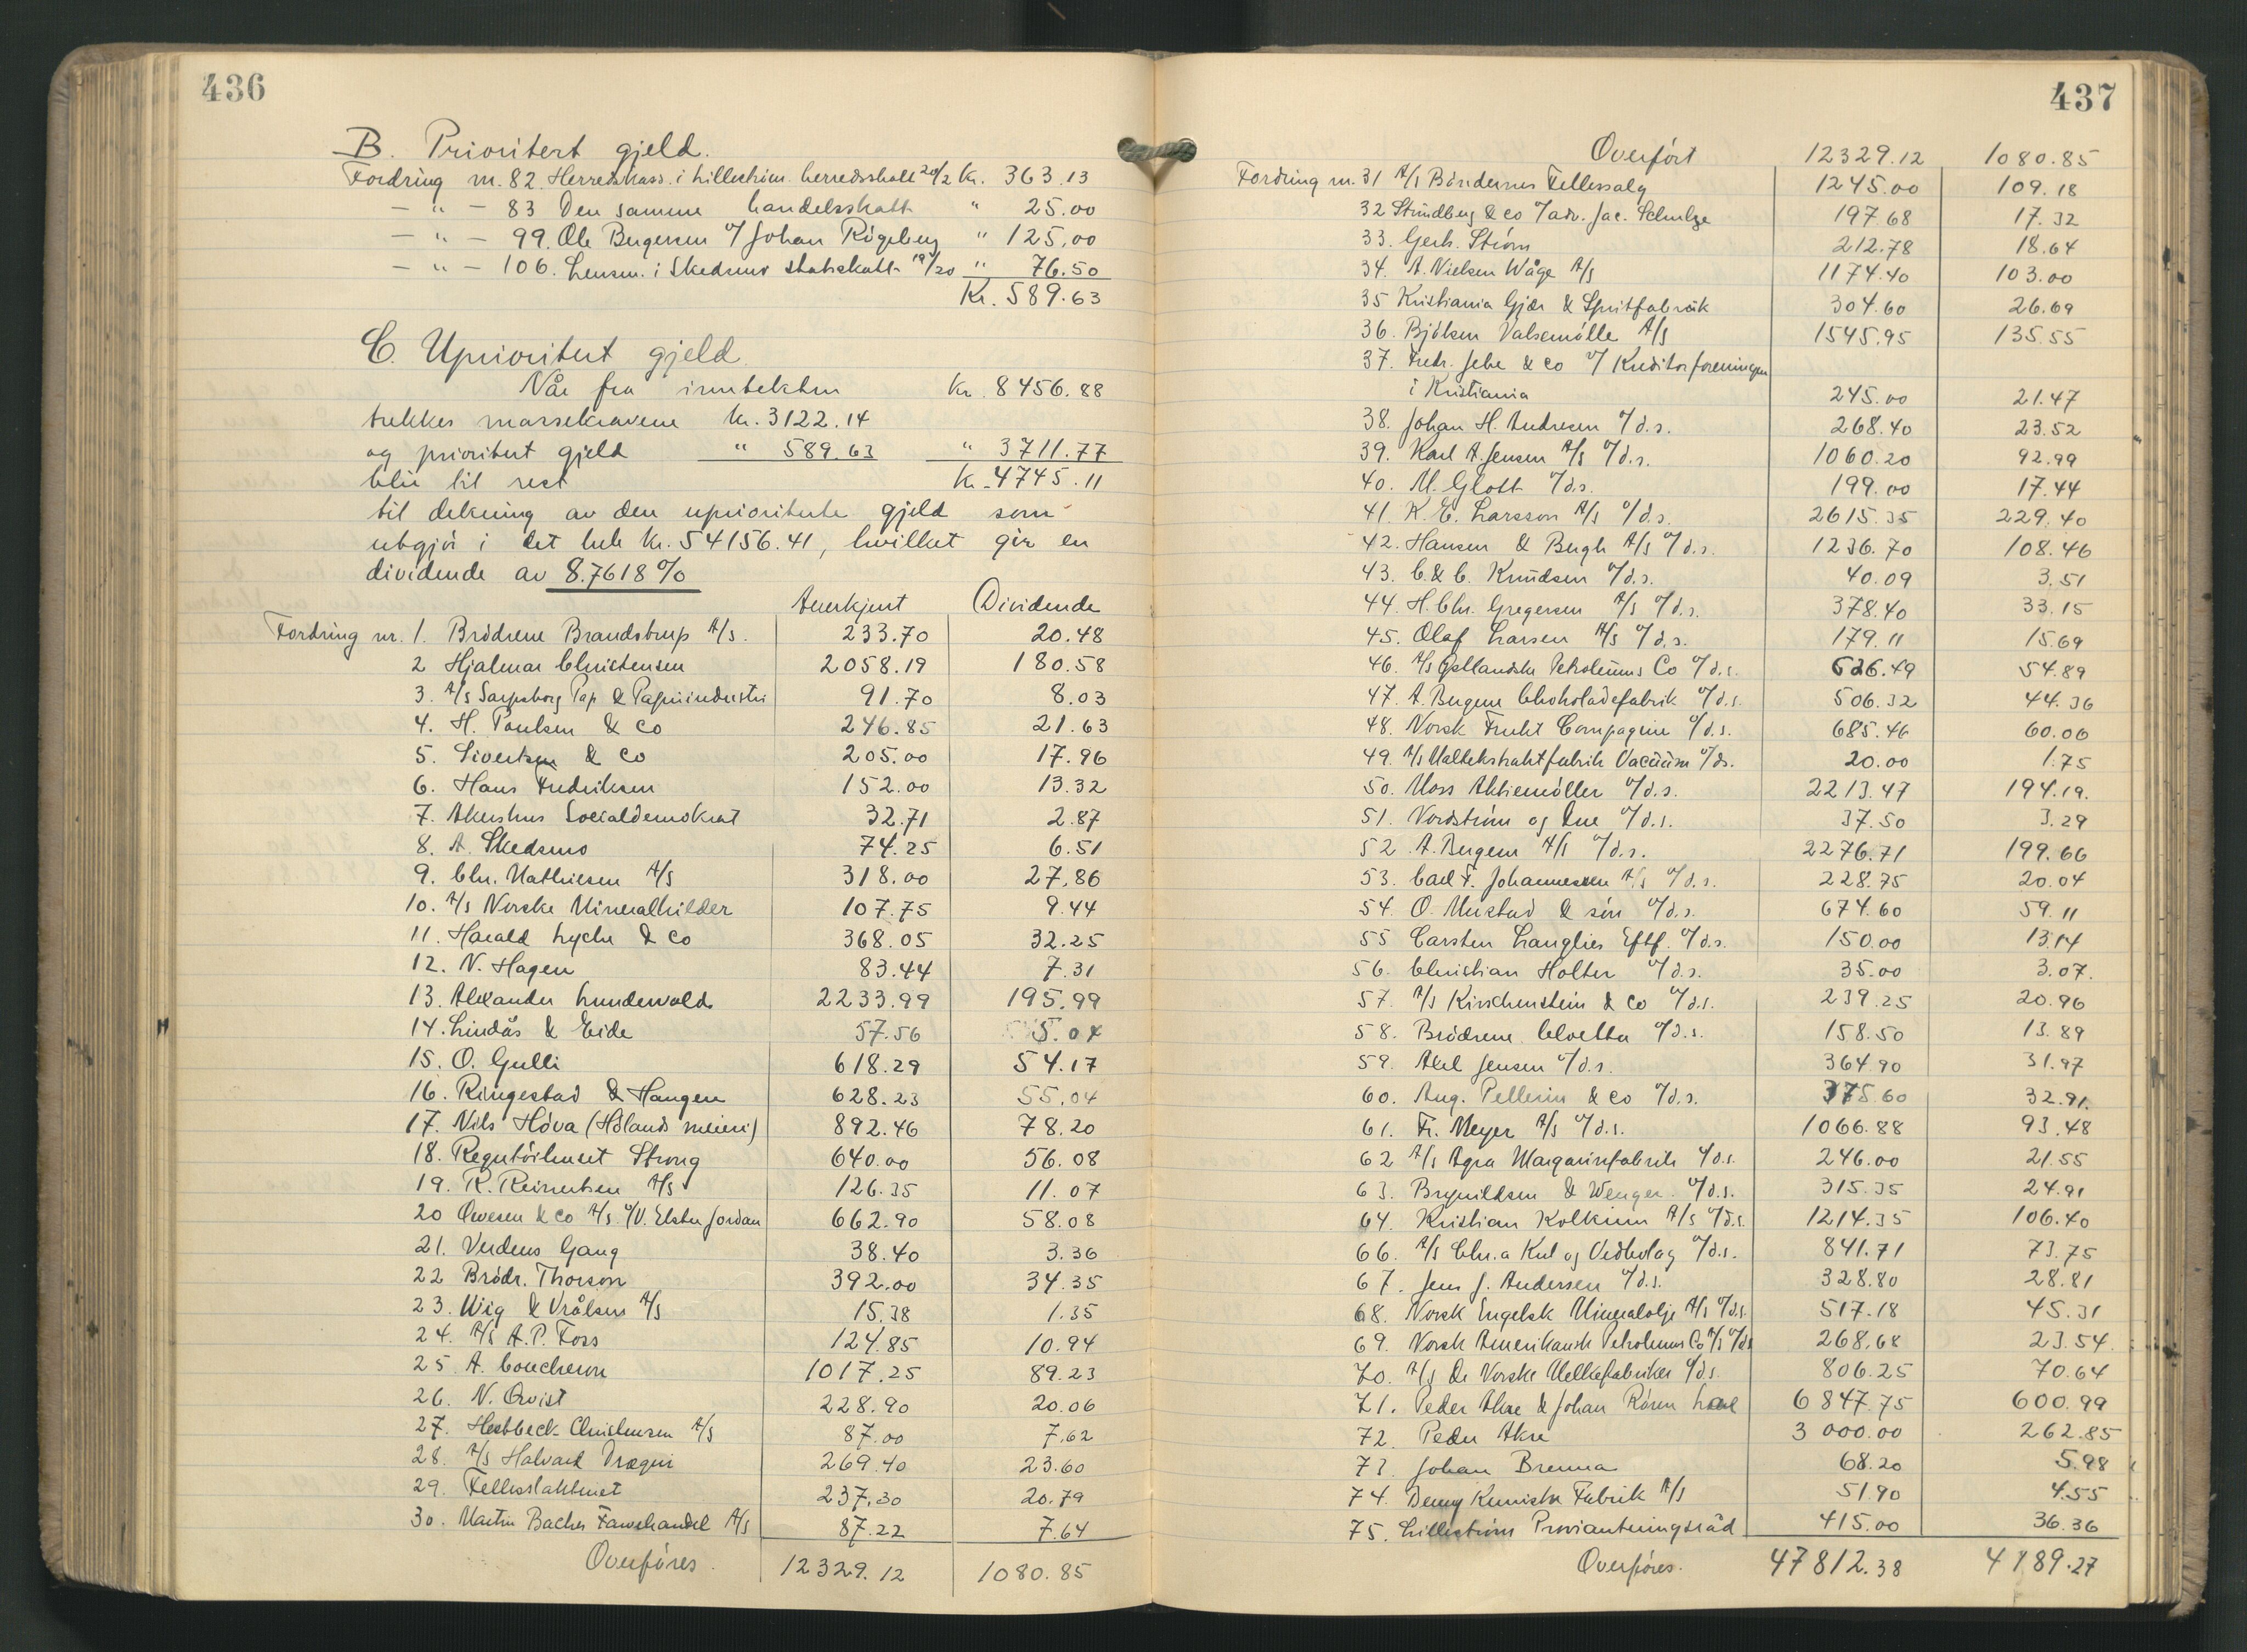 436
B. Prioritert gjeld.
Fordring nr. 82. Herredskass. i Lillestrøm herredsskatt 20/2 kr. 363.13
— " — 83 Den samme handelsskatt " 25.00
— " — 99. Ole Bergersen v/ Johan Rögeberg " 125.00
— " — 106. Lensm. i Skedsmo statsskatt 19/20 " 76.50
Kr. 589.63
C. Uprioritert gjeld.
Når fra inntekten kr. 8456.88
trekkes massekravene kr. 3122.14
og prioritert gjeld " 589.63 " 3711.77
blir til rest kr. 4745.11
til dekning av den uprioriterte gjeld som
utgjör i det hele kr. 54156.41, hvilket gir en
dividende av 8.7618 %
Anerkjent Dividende
Fordring nr. 1. Brödrene Brandstrup A/S. 233.70 20.48
2 Hjalmar Christensen 2058.19 180.58
3. A/S Sarpsborg Pap & Papirindustri 91.70 8.03
4. H. Poulsen & Co 246.85 21.63
5. Sivertsen & Co 205.00 17.96
6. Hans Fredriksen 152.00 13.32
7. Akershus Socialdemokrat 32.71 2.87
8. A. Skedsmo 74.25 6.51
9. Chr. Mathiesen A/S 318.00 27.86
10. A/S Norske Mineralkilder 107.75 9.44
11. Harald Lyche & Co 368.05 32.25
12. N. Hagen 83.44 7.31
13. Alexander Lundevold 2233.99 195.99
14. Lindås & Eide 57.56 5.04
15. O. Gulli 618.29 54.17
16. Ringestad & Haugen 628.23 55.04
17. Nils Höva (Hölands meieri) 892.46 78.20
18. Regutörlmeet Strong 640.00 56.08
19. R. Reinertsen A/S 126.35 11.07
20 Owesen & Co A/S. v/ V. Elster Jordan 662.90 58.08
21. Verdens Gang 38.40 3.36
22 Brödr. Thorson 392.00 34.35
23. Wig & Vrålsen A/S 15.38 1.35
24. A/S A.P. Foss 124.85 10.94
25 A. Coucheron 1017.25 89.23
26. N. Qvist 228.90 20.06
27. Hesbbeck Christensen A/S 87.00 7.62
28. A/S Halvard Dragen 269.40 23.60
29. Fellesslakteriet 237.30 20.79
30. Martin Baches Farvehandel A/S 87.22 7.64
Overföres. 12329.12 1080.85
437
Overfört 12329.12 1080.85
Fordring nr. 31 A/S Böndernes Fellessalg 1245.00 109.18
32 Strindberg & Co v/ adv. Jac. Schulze 197.68 17.32
33. Gerh. Ström 212.78 18.64
34. A. Nielsen Wåge A/S 1174.40 103.00
35 Kristiania Gjær & Spritfabrik 304.60 26.69
36. Bjölsen Valsemölle A/S 1545.95 135.55
37. Fredr. Jebe & Co v/ Kreditorforeningen
i Kristiania 245.00 21.47
38. Johan H. Andresen v/ d.s. 268.40 23.52
39. Karl A. Jensen A/S v/ d.s. 1060.20 92.99
40. M. Glott v/ d.s. 199.00 17.44
41. K. E. Larsson A/S v/ d.s. 2615.35 229.40
42. Hansen & Bergh A/S v/ d.s. 1236.70 108.46
43. C. & C. Knudsen v/ d.s. 40.09 3.51
44. H. Chr. Gregersen A/S v/ d.s. 378.40 33.15
45. Olaf Larsen A/S v/ d.s. 179.11 15.69
46. A/S Östlandske Petroleums Co v/ d.s. 626.49 54.89
47. A. Bergene Chokoladefabrik v/ d.s. 506.32 44.36
48. Norsk Frukt Compagnie v/ d.s. 685.46 60.06
49. A/S Maltekstraktfabrik Vacuum v/ ds. 20.00 1.75
50. Moss Aktiemöller v/ d.s. 2213.47 194.19.
51. Nordström og Due v/ d.s. 37.50 3.29
52. A. Bergem A/S v/ d.s. 2276.71 199.66
53. Carl F. Johannessen A/S v/ d.s. 228.75 20.04
54. O. Mustad & sön v/ d.s. 674.60 59.11
55 Carsten Langlies Eftf. v/ d.s. 150.00 13.14
56. Christian Holter v/ d.s. 35.00 3.07.
57. A/S Kirschenstein & Co v/ d.s. 239.25 20.96
58. Brödrene Cloetta v/ d.s. 158.50 13.89
59. Axel Jensen v/ d.s. 364.90 31.97
60. Aug. Pellerin & Co v/ d.s. 375.60 32.91.
61. Fr. Meyer A/S v/ d.s. 1066.88 93.48
62 A/S Agra Margarinfabrik v/ d.s. 246.00 21.55
63. Brynildsen & Wenger v/ d.s. 315.35 24.91
64. Kristian Kolkinn A/S v/ d.s. 1214.35 106.40
66. A/S Chr.a Kul og Vedbolag v/ d.s. 841.71 73.75
67. Jens J. Andersen v/ d.s. 328.80 28.81
68. Norsk Engelsk Mineralolje A/S v/ d.s. 517.18 45.31
69. Norsk Amerikansk Petroleums Co A/S v/ ds 268.68 23.54
70. A/S De Norske Melkefabriker v/ d.s. 806.25 70.64
71. Peder Akre & Johan Rören 6847.75 600.99
72. Peder Akre 3000.00 262.85
73. Johan Brenna 68.20 5.98
74. Kemiske Fabrik A/S 51.90 4.55
75. Lilleströms Provianteringsråd 415.00 36.36
Overföres. 47812.38 4189.27